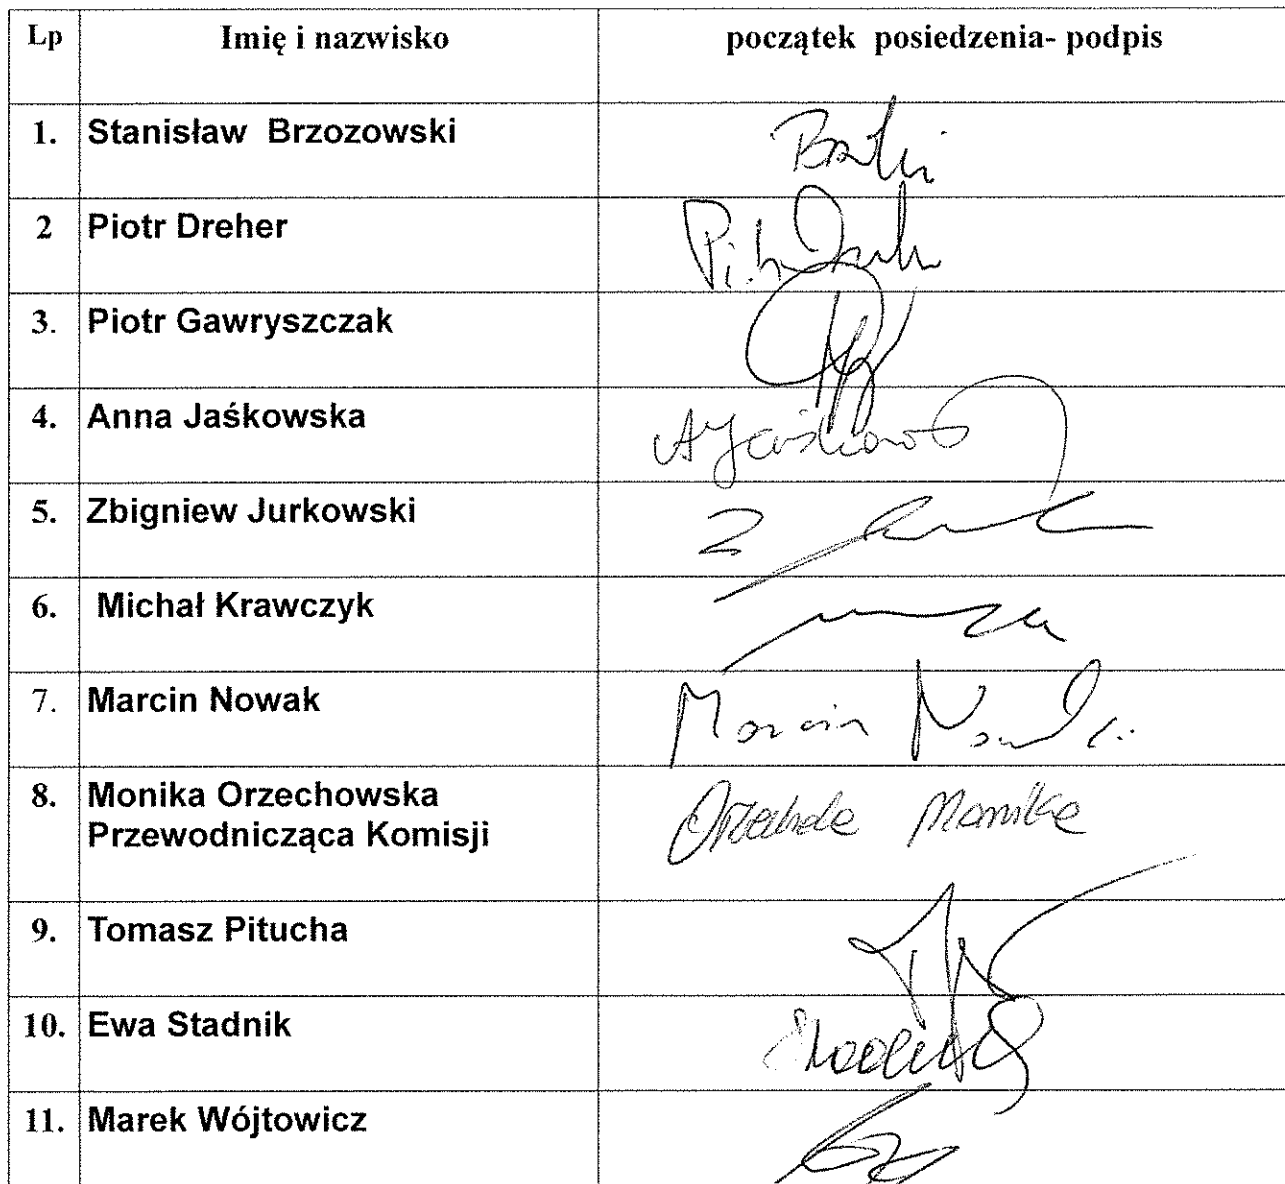 Lp Imię i nazwisko początek posiedzenia- podpis
1. Stanisław Brzozowski
2 Piotr Dreher
3. Piotr Gawryszczak
4. Anna Jaśkowska AJaśkows
5. Zbigniew Jurkowski Z
6. Michał Krawczyk
7. Marcin Nowak Marcin Nowak
8. Monika Orzechowska Monika
Przewodnicząca Komisji
9. Tomasz Pitucha
10. Ewa Stadnik
11. Marek Wójtowicz